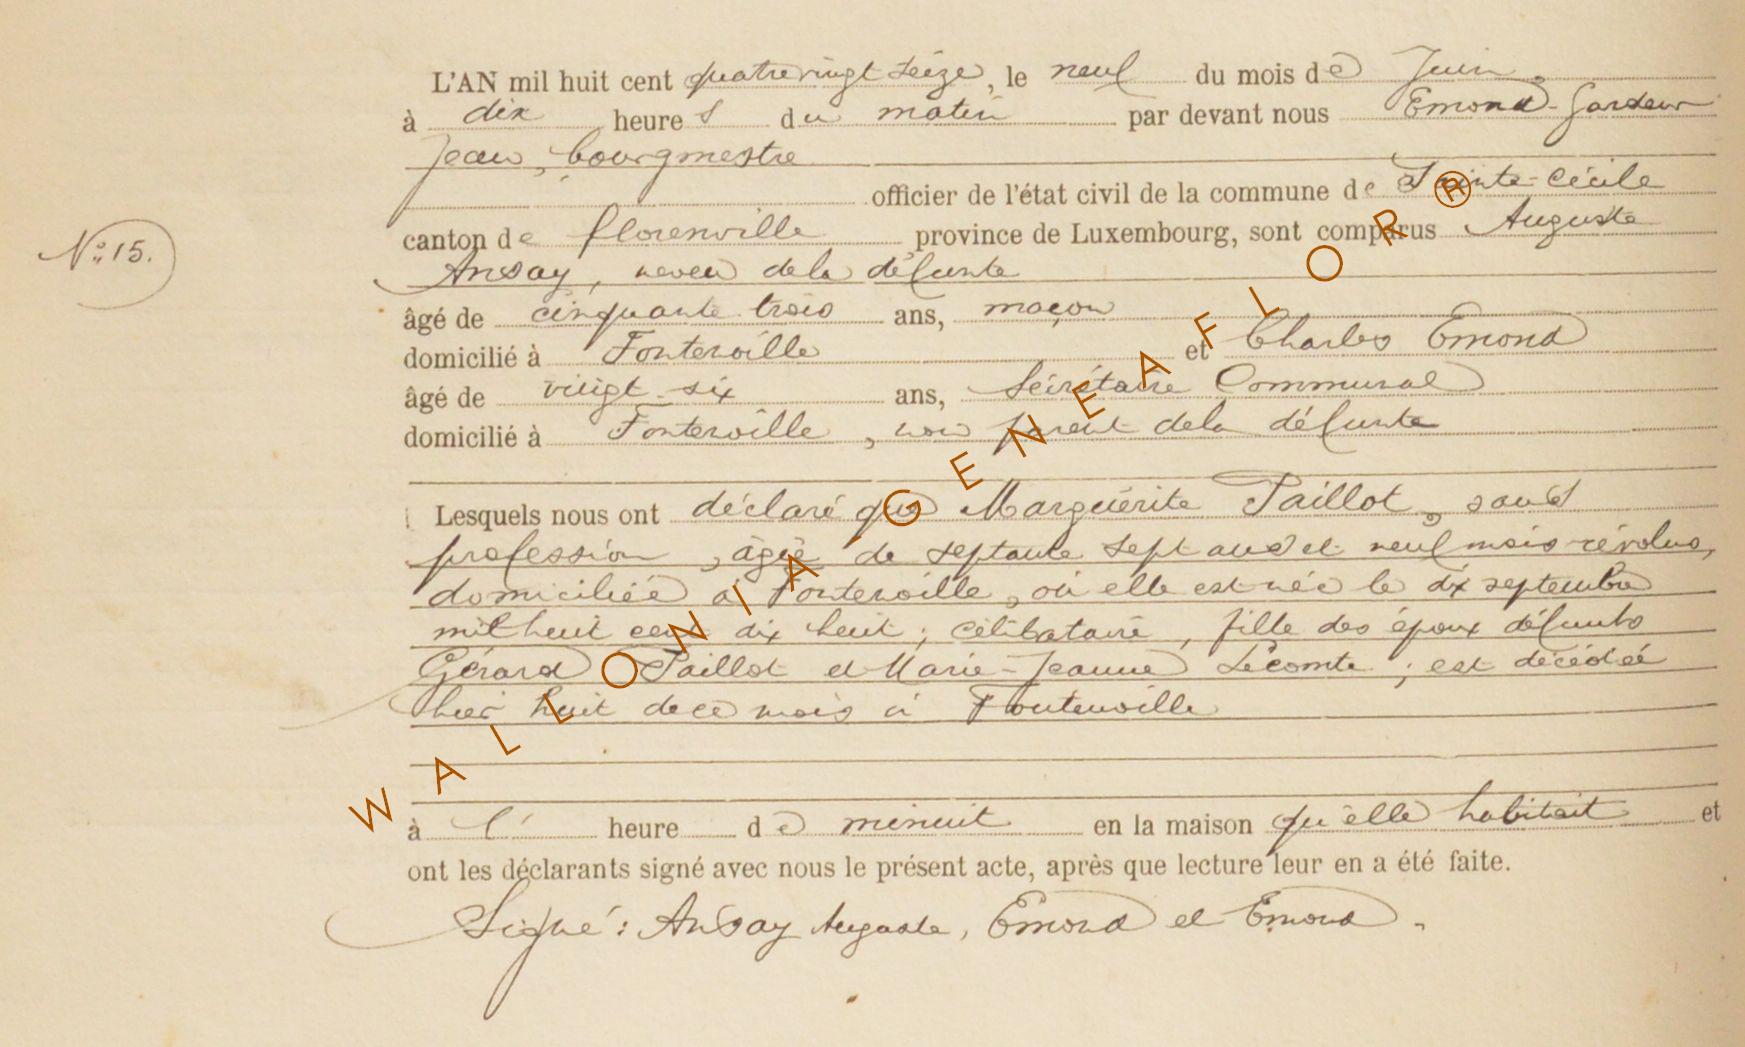 L'AN mil huit cent quatrevingt seize, le neuf du mois de Juin
à dix heures du matin par devant nous Emond-Gardeur
Jean, bourgmestre
officier de l'état civil de la commune de Sainte-Cécile
canton de florenville province de Luxembourg, sont comparus Auguste
N° 15.
Ansay, neveu de la défunte
âgé de cinquante trois ans, maçon
domicilié à Fontenoille et Charles Emond
âgé de vingt-six ans, Sécrétaire Communal
domicilié à Fontenoille, non parent de la défunte
Lesquels nous ont déclaré que Marguérite Paillot, sans
profession, âgée de septante sept ans et neuf mois révolus,
domiciliée à Fontenoille, où elle est née le dix septembre
mil huit cent dix huit; célibataire, fille des époux défunts
Gérard Paillot et Marie-Jeanne Lecomte; est décédée
hier huit de ce mois à Fontenoille
à l' heure de minuit en la maison qu'elle habitait et
ont les déclarants signé avec nous le présent acte, après que lecture leur en a été faite.
Signé: Ansay Auguste, Emond et Emond.
WALLONIA GENEAFLOR ®